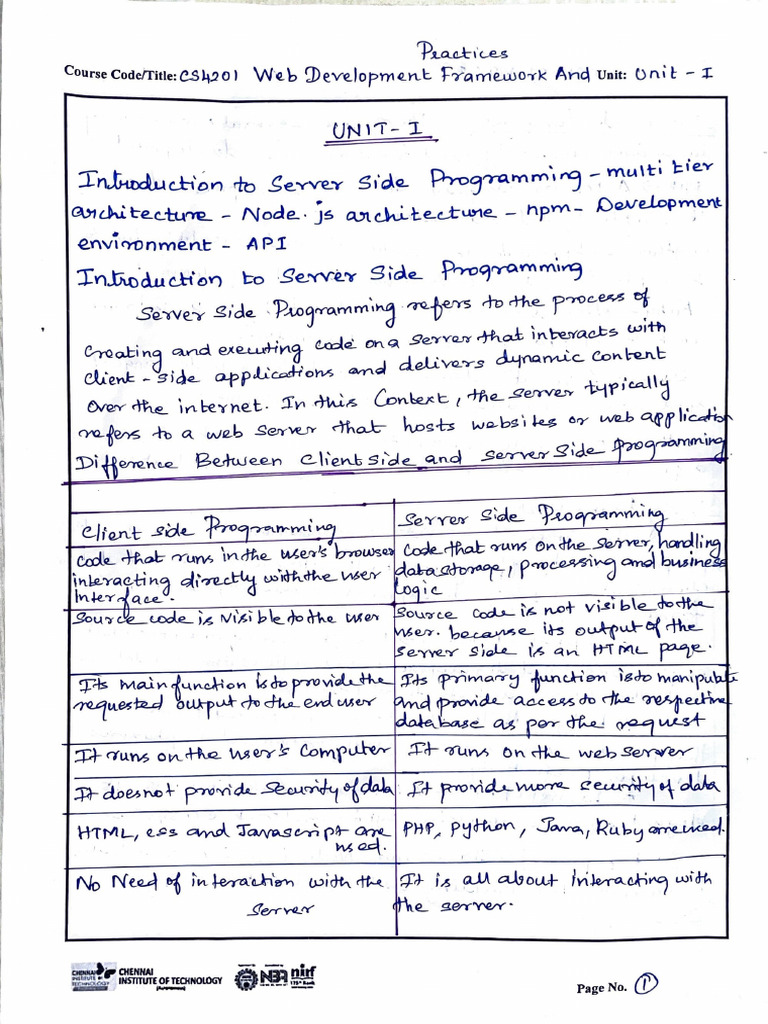 Practices
Course Code/Title: CS4201 Web Development Framework And Unit: Unit - I
UNIT - I
Introduction to Server Side Programming - multi tier
architecture - Node.js architecture - npm - Development
environment - API
Introduction to Server Side Programming
Server Side Programming refers to the process of
creating and executing code on a server that interacts with
client-side applications and delivers dynamic content
over the internet. In this Context, the server typically
refers to a web server that hosts websites or web application
Difference Between Client side and Server Side Programming
Client side Programming
Server Side Programming
Code that runs in the user's browser
interacting directly with the user
interface.
Code that runs on the server, handling
data storage, processing and business
logic
Source code is visible to the user
Source code is not visible to the
user. because its output of the
server side is an HTML page.
Its main function is to provide the
requested output to the end user
Its primary function is to manipulate
and provide access to the respective
database as per the request
It runs on the user's Computer
It runs on the web server
It doesnot provide Security of data
It provide more security of data
HTML, css and Javascript are
used.
PHP, Python, Java, Ruby are used.
No Need of interaction with the
Server
It is all about interacting with
the server.
CHENNAI
INSTITUTE OF TECHNOLOGY
NBA nirf
Page No. 1